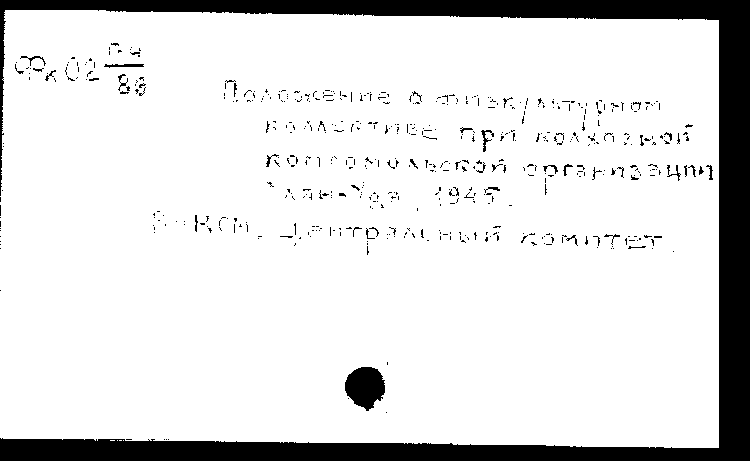 Фк 02 П-4
88
Положение о физкультурном
коллективе при колхозной
комсомольской организации
Улан-Удэ, 1945.
ВЛКСМ. Центральный комитет.